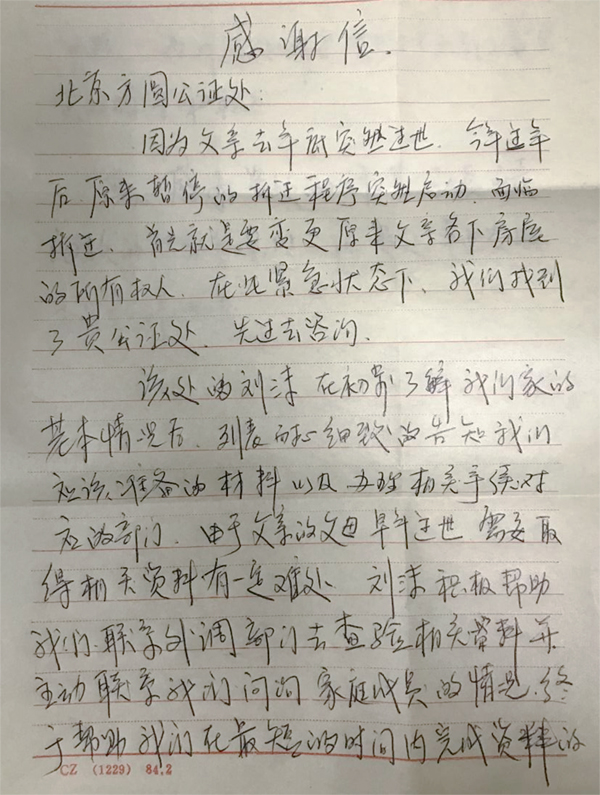 感谢信.
北京方圆公证处:
因为父亲去年底突然过世. 今年过年
后.原来暂停的拆迁程序突然启动.面临
拆迁、首先就是要变更原来父亲名下房屋
的所有权人. 在此紧急状态下、我们找到
了贵公证处.先过去咨询.
该处的刘沫在初步了解我们家的
基本情况后、列表耐心细致的告知我们
应该准备的材料以及办理相关手续对
应的部门. 由于父亲的父母早年过世 需要取
得相关资料有一定难处. 刘沫积极帮助
我们.联系外调部门去查验相关资料并
主动联系我们问询家庭成员的情况.终
于帮助我们在最短的时间内完成资料的
CZ (1229) 84.2